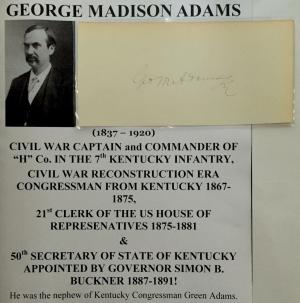 GEORGE MADISON ADAMS
Geo M Adams
(1837 – 1920)
CIVIL WAR CAPTAIN and COMMANDER OF
"H" Co. IN THE 7th KENTUCKY INFANTRY,
CIVIL WAR RECONSTRUCTION ERA
CONGRESSMAN FROM KENTUCKY 1867-
1875,
21st CLERK OF THE US HOUSE OF
REPRESENATIVES 1875-1881
&
50th SECRETARY OF STATE OF KENTUCKY
APPOINTED BY GOVERNOR SIMON B.
BUCKNER 1887-1891!
He was the nephew of Kentucky Congressman Green Adams.